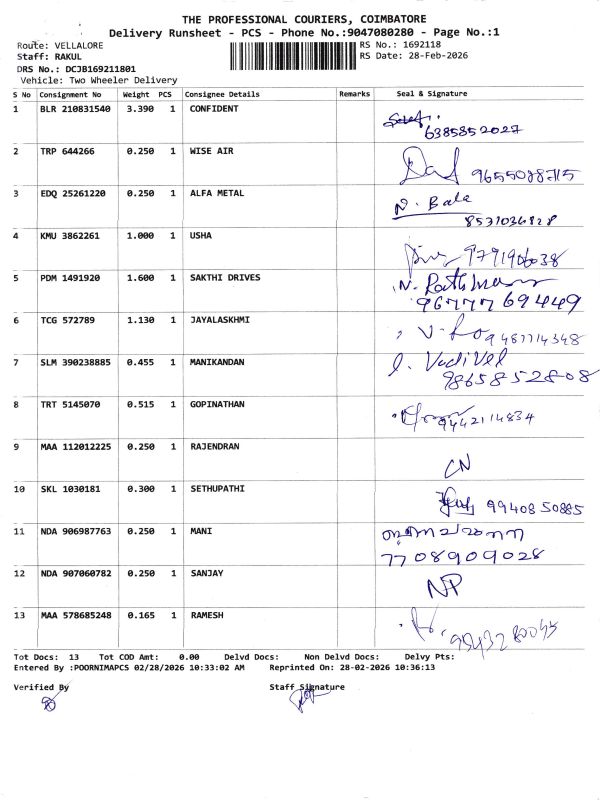 THE PROFESSIONAL COURIERS, COIMBATORE
Delivery Runsheet - PCS - Phone No.:9047080280 - Page No.:1
Route: VELLALORE RS No.: 1692118
Staff: RAKUL RS Date: 28-Feb-2026
DRS No.: DCJB169211801
Vehicle: Two Wheeler Delivery
S No Consignment No Weight PCS Consignee Details Remarks Seal & Signature
1 BLR 210831540 3.390 1 CONFIDENT
6385852027
2 TRP 644266 0.250 1 WISE AIR
9655088715
3 EDQ 25261220 0.250 1 ALFA METAL N. Bala
8531036828
4 KMU 3862261 1.000 1 USHA
9791906038
5 PDM 1491920 1.600 1 SAKTHI DRIVES N.
9677769449
6 TCG 572789 1.130 1 JAYALASKHMI
9487714348
7 SLM 390238885 0.455 1 MANIKANDAN Vadivel
9865852808
8 TRT 5145070 0.515 1 GOPINATHAN
9442114834
9 MAA 112012225 0.250 1 RAJENDRAN
CN
10 SKL 1030181 0.300 1 SETHUPATHI
99408 50885
11 NDA 906987763 0.250 1 MANI
7708909028
12 NDA 907060782 0.250 1 SANJAY
NP
13 MAA 578685248 0.165 1 RAMESH
Tot Docs: 13 Tot COD Amt: 0.00 Delvd Docs: Non Delvd Docs: Delvy Pts:
Entered By :POORNIMAPCS 02/28/2026 10:33:02 AM Reprinted On: 28-02-2026 10:36:13
Verified By Staff Signature